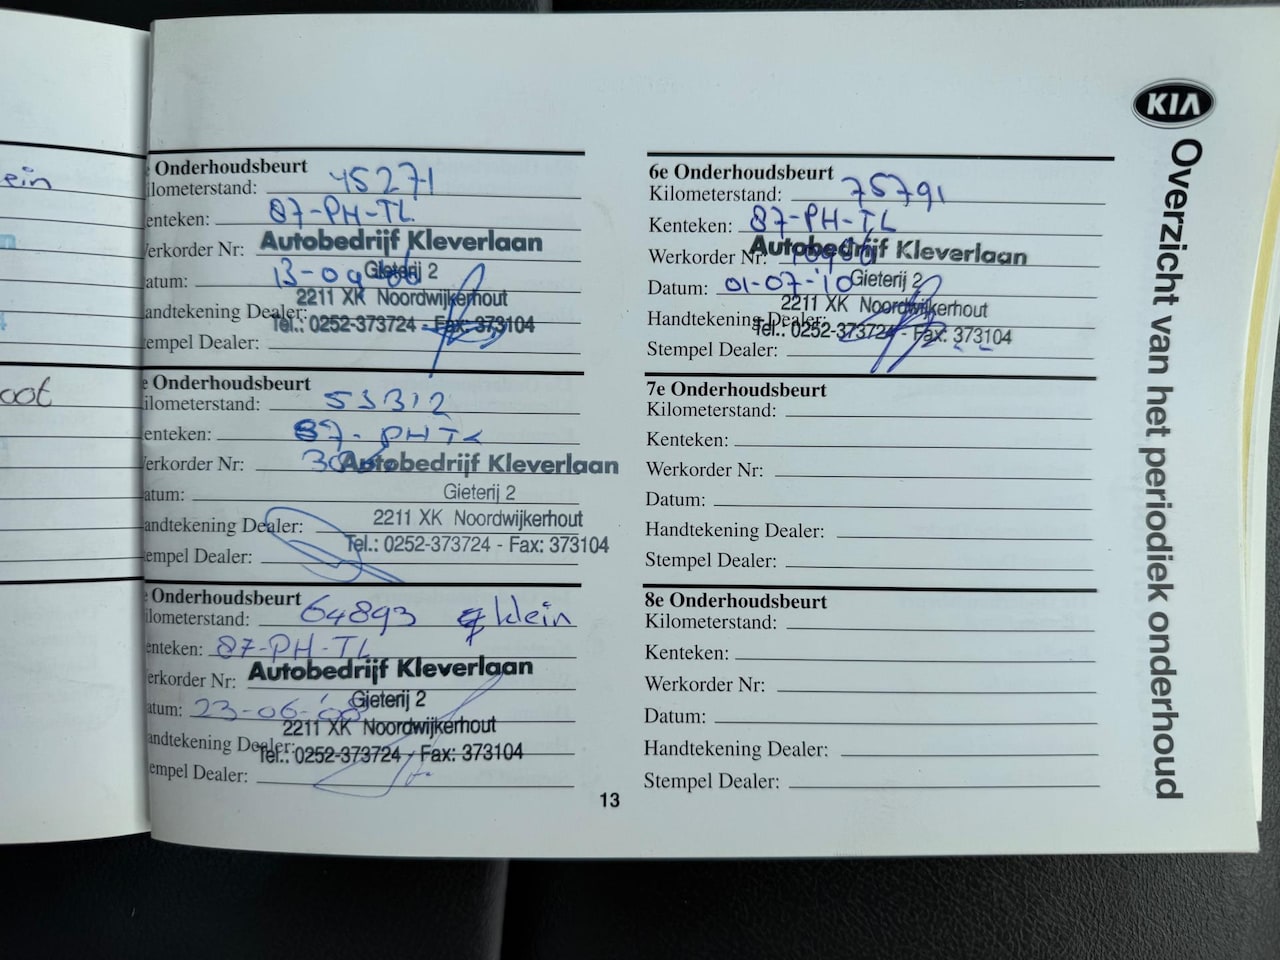 ein
oot
Onderhoudsbeurt
ilometerstand: 45271
enteken: 87-PH-TL
erkorder Nr:
Autobedrijf Kleverlaan
atum: 13-09-
Gieterij 2
2211 XK Noordwijkerhout
andtekening Dealer:
Tel.: 0252-373724 - Fax: 373104
empel Dealer:
e Onderhoudsbeurt
ilometerstand: 55312
enteken: 87-PHTL
erkorder Nr:
Autobedrijf Kleverlaan
atum:
Gieterij 2
2211 XK Noordwijkerhout
andtekening Dealer:
Tel.: 0252-373724 - Fax: 373104
empel Dealer:
e Onderhoudsbeurt
ilometerstand: 64893 klein
enteken: 87-PH-TL
erkorder Nr:
Autobedrijf Kleverlaan
atum: 23-06-'08
Gieterij 2
2211 XK Noordwijkerhout
andtekening Dealer:
Tel.: 0252-373724 - Fax: 373104
empel Dealer:
6e Onderhoudsbeurt
Kilometerstand: 75791
Kenteken: 87-PH-TL
Werkorder Nr:
Autobedrijf Kleverlaan
Datum: 01-07-'10
Gieterij 2
2211 XK Noordwijkerhout
Handtekening Dealer:
Tel.: 0252-373724 - Fax: 373104
Stempel Dealer:
7e Onderhoudsbeurt
Kilometerstand:
Kenteken:
Werkorder Nr:
Datum:
Handtekening Dealer:
Stempel Dealer:
8e Onderhoudsbeurt
Kilometerstand:
Kenteken:
Werkorder Nr:
Datum:
Handtekening Dealer:
Stempel Dealer:
13
KIA
Overzicht van het periodiek onderhoud